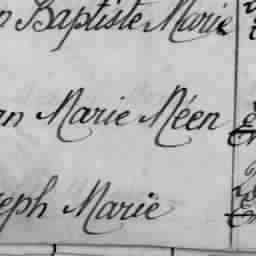 Baptiste Marie
an Marie Méen
seph Marie